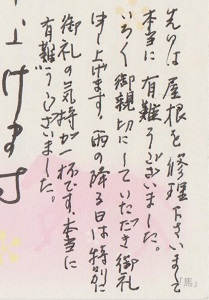 上げます
先日は屋根を修理下さいまして
本当に有難うございました。
いろいろ御親切にしていただき御礼
申し上げます。雨の降る日は特別に
御礼の気持が一杯です。本当に
有難うございました。
「馬」